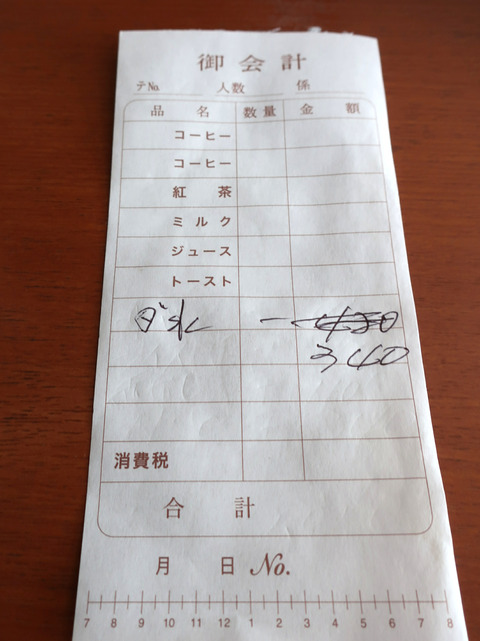 御会計
テNo. 人数 係
品名 数量 金額
コーヒー
コーヒー
紅茶
ミルク
ジュース
トースト
ダ氷 一
340
消費税
合計
月 日 No.
7 8 9 10 11 12 1 2 3 4 5 6 7 8